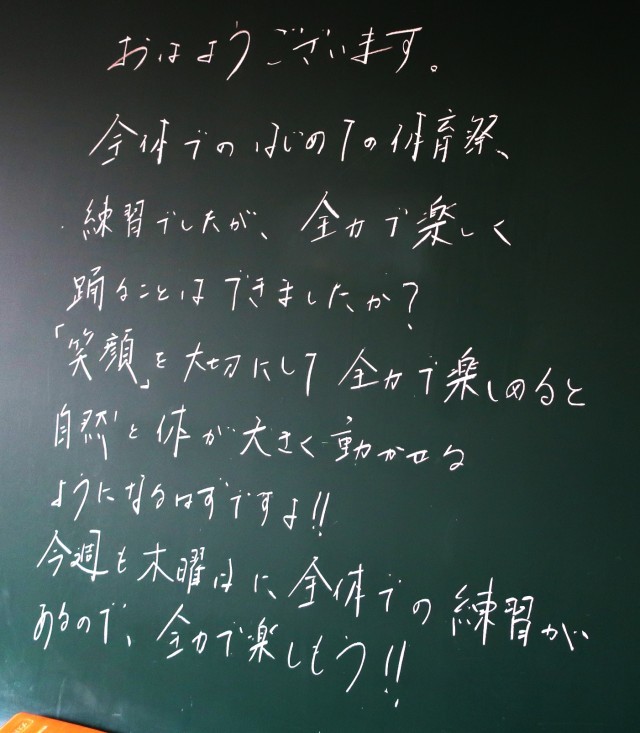 おはようございます。
全体でのはじめての体育祭、
練習でしたが、全力で楽しく
踊ることはできましたか？
「笑顔」を大切にして全力で楽しめると
自然と体が大きく動かせる
ようになるはずですよ!!
今週も木曜日に全体での練習が
あるので、全力で楽しもう!!